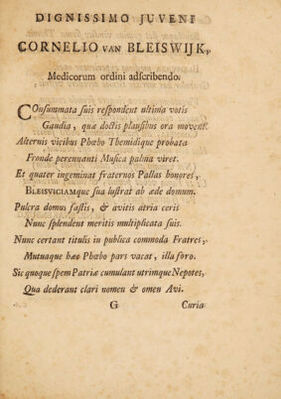 DIGNISSIMO JUVENI
CORNELIO VAN BLEISWIJK,
Medicorum ordini adscribendo.
Consummata suis respondent ultima votis
Gaudia, quæ doctis plausibus ora movent.
Alternis vicibus Phœbo Themidique probata
Fronde perennanti Musica palma viret.
Et quater ingeminat fraternos Pallas honores,
BLEISVICIAMque sua lustrat ab æde domum.
Pulcra domus fastis, & avitis atria ceris
Nunc splendent meritis multiplicata suis.
Nunc certant titulis in publica commoda Fratres,
Mutuaque hæc Phœbo pars vacat, illa foro.
Sic quoque spem Patriæ cumulant utrimque Nepotes,
Qua dederant clari nomen & omen Avi.
G Curia